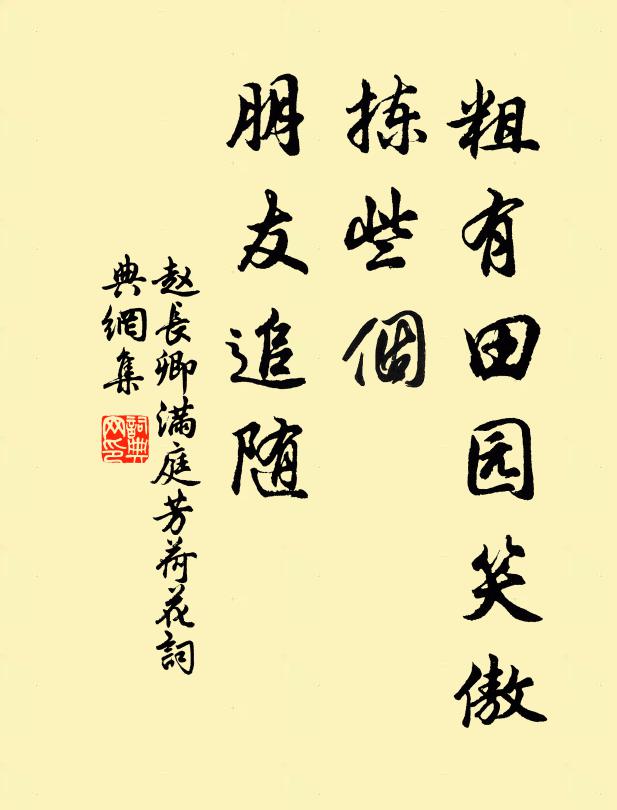 粗有田园笑傲
拣些個
朋友追随
赵長卿满庭芳荷花詞
典網集
詞典
网印